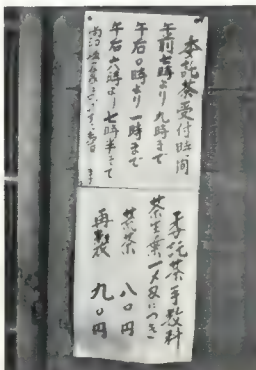 委託茶受付時間
午前七時より九時まで
午后〇時より一時まで
午后六時より七時半まで
委託茶手数料
茶生葉一〆匁につき
荒茶 八〇円
再製 九〇円